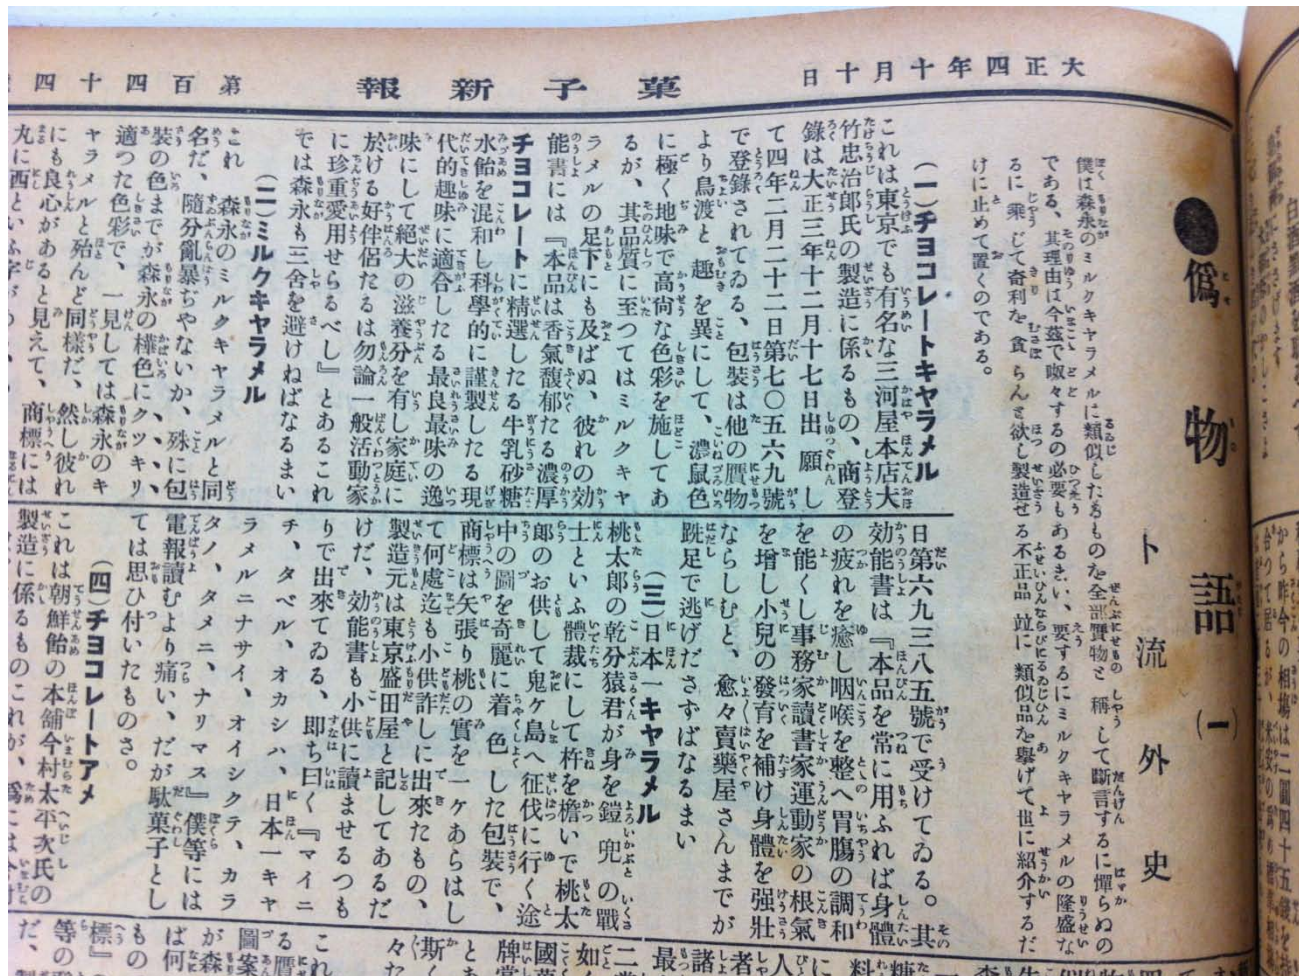 大正四年十月十日
菓子新報
第百四十四
●僞物語(一)
ト流外史
僕は森永のミルクキヤラメルに類似したるものを全部贋物と稱して斷言するに憚らぬの
である、其理由は今茲で呶々するの必要もあるまい、要するにミルクキヤラメルの隆盛な
るに乘じて奇利を貪らんと欲し製造せる不正品竝に類似品を擧げて世に紹介するだ
けに止めて置くのである。
(一)チヨコレートキヤラメル
これは東京でも有名な三河屋本店大
竹忠治郎氏の製造に係るもの、商登
錄は大正三年十二月十七日出願し
て四年二月二十二日第七〇五六九號
で登錄されてゐる、包裝は他の贋物
より鳥渡と趣を異にして、濃鼠色
に極く地味で高尙な色彩を施してあ
るが、其品質に至つてはミルクキヤ
ラメルの足下にも及ばぬ、彼れの効
能書には『本品は香氣馥郁たる濃厚
チヨコレートに精選したる牛乳砂糖
水飴を混和し科學的に謹製したる現
代的趣味に適合したる最良最味の逸
味にして絕大の滋養分を有し家庭に
於ける好伴侶たるは勿論一般活動家
に珍重愛用せらるべし』とあるこれ
では森永も三舍を避けねばなるまい
(二)ミルクキヤラメル
これ森永のミルクキヤラメルと同
名だ、隨分亂暴ぢやないか、殊に包
裝の色までが森永の樺色にクツキリ
適つた色彩で、一見しては森永のキ
ヤラメルと殆んど同樣だ、然し彼れ
にも良心があると見えて、商標には
丸に西といふ字が
日第六九三八五號で受けてゐる。其
効能書は『本品を常に用ふれば身體
の疲れを癒し咽喉を整へ胃膓の調和
を能くし事務家讀書家運動家の根氣
を增し小兒の發育を補け身體を强壯
ならしむと、愈々賣藥屋さんまでが
跣足で逃げださずばなるまい
(三)日本一キヤラメル
桃太郎の乾分猿君が身を鎧兜の戰
士といふ體裁にして杵を擔いで桃太
郎のお供して鬼ヶ島へ征伐に行く途
中の圖を奇麗に着色した包裝で、
商標は矢張り桃の實を一ケあらはし
て何處迄も小供詐しに出來たもの、
製造元は東京盛田屋と記してあるだ
けだ、効能書も小供に讀ませるつも
りで出來てゐる、即ち曰く『マイニ
チ、タベル、オカシハ、日本一キヤ
ラメルニナサイ、オイシクテ、カラ
タノ、タメニ、ナリマス』僕等には
電報讀むより痛い、だが駄菓子とし
ては思ひ付いたものさ。
(四)チヨコレートアメ
これは朝鮮飴の本舖今村太平次氏の
製造に係るものこれが、爲には